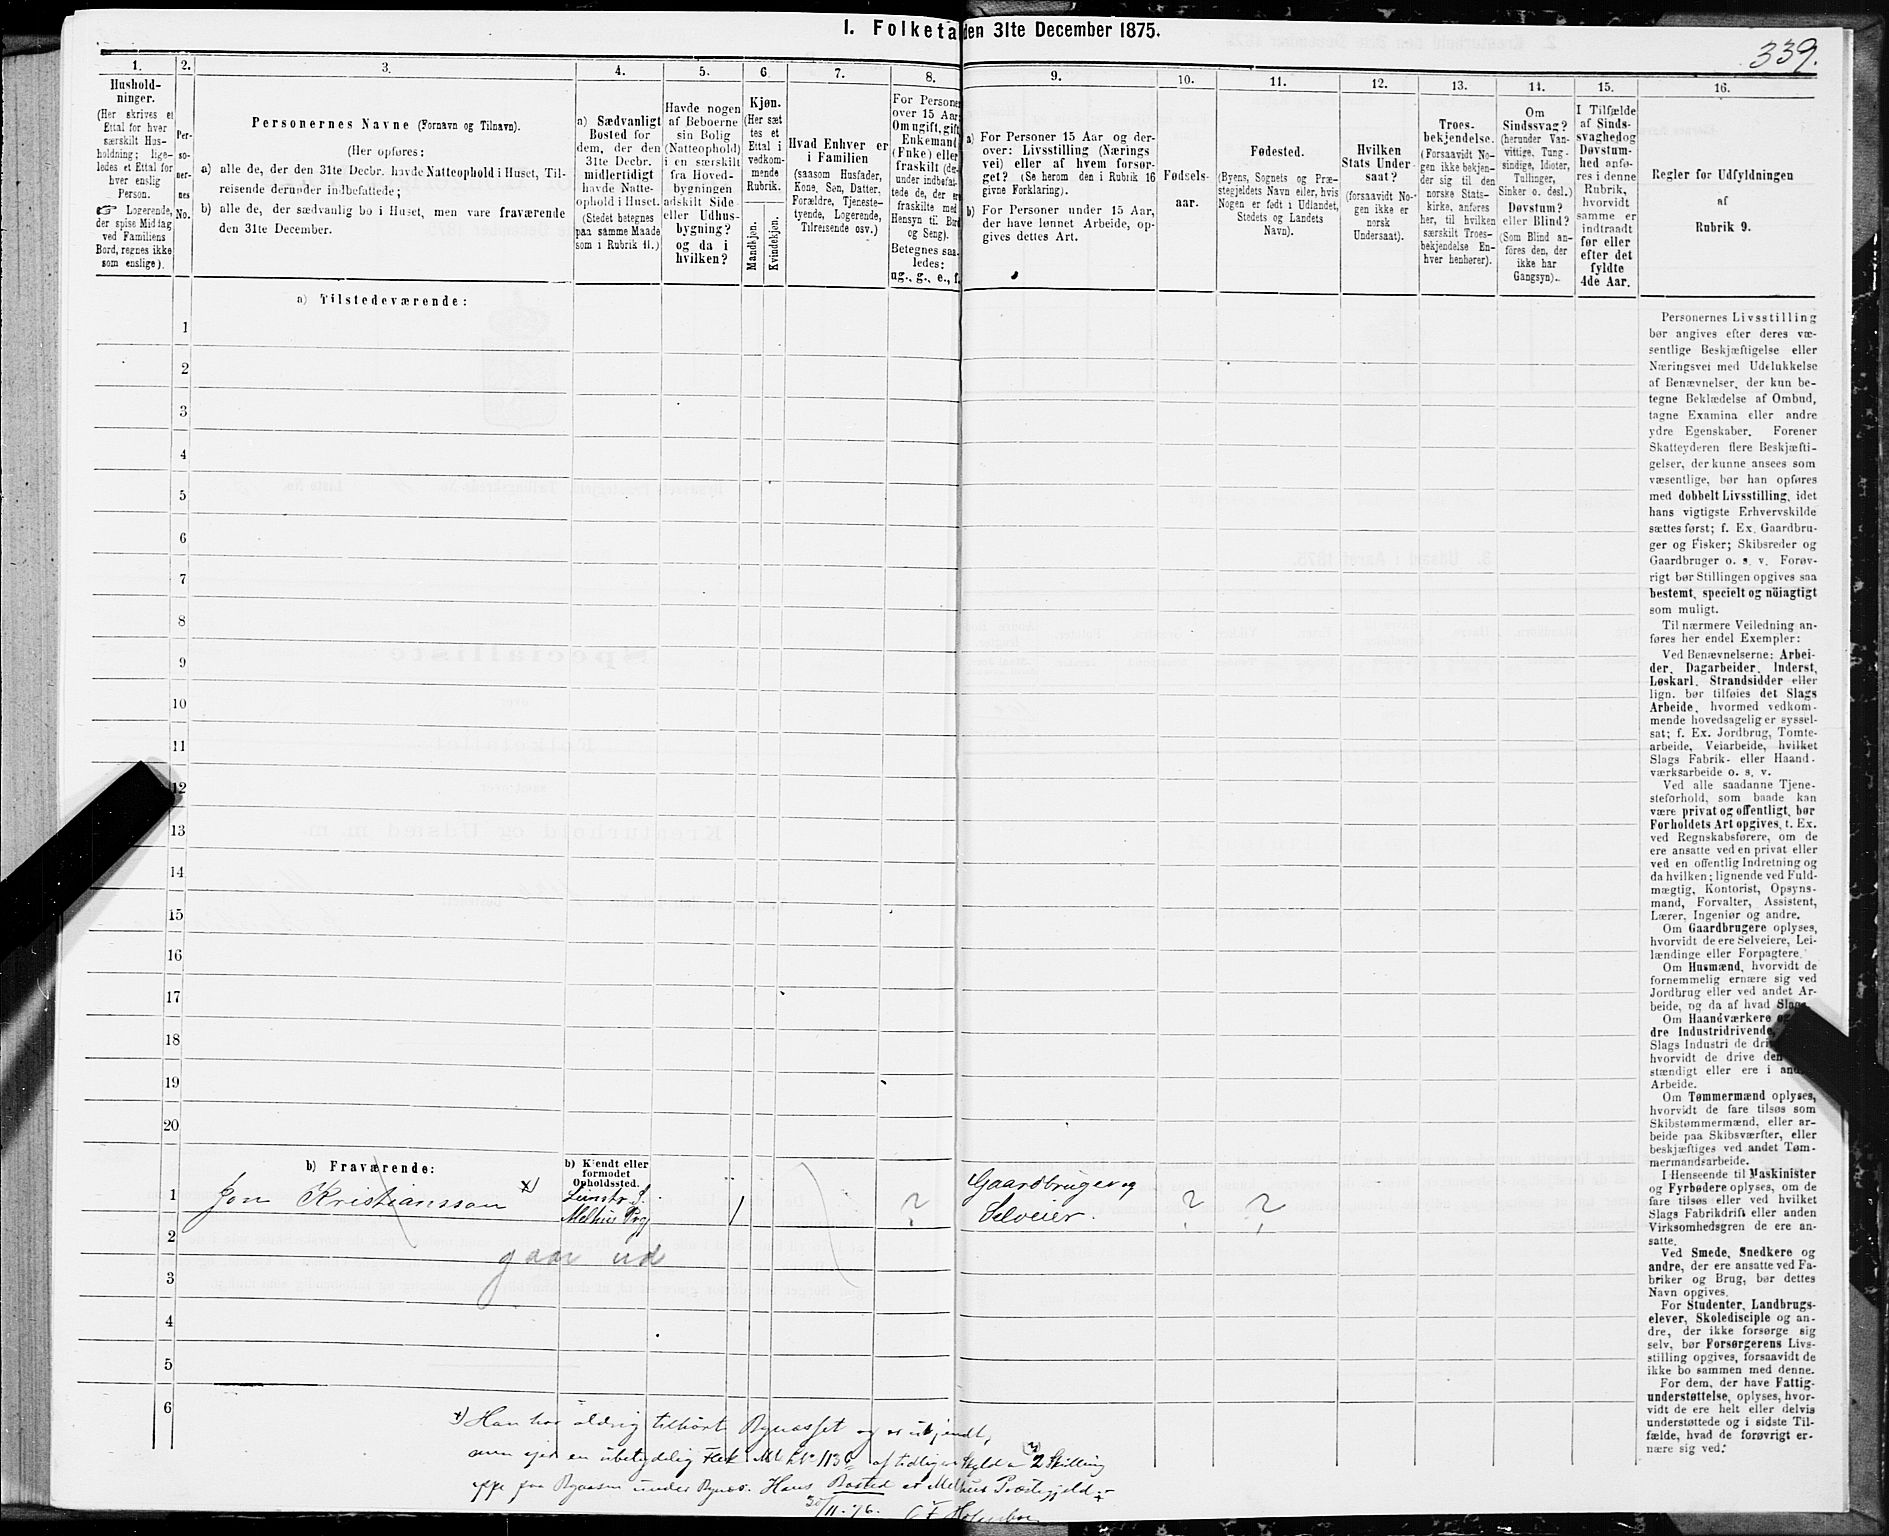 339.
I. Folketa
den 31te December 1875.
1.
Hushold-
ninger.
(Her skrives et
Ettal for hver
særskilt Hus-
holdning; lige-
ledes et Ettal for
hver enslig
Person.
☞ Logerende,
der spise Middag
ved Familiens
Bord, regnes ikke
som enslige).
2.
Per-
so-
ner-
nes
No.
3.
Personernes Navne (Fornavn og Tilnavn).
(Her opføres:
a) alle de, der den 31te Decbr. havde Natteophold i Huset, Til-
reisende derunder indbefattede;
b) alle de, der sædvanlig bo i Huset, men vare fraværende
den 31te December.
4.
a) Sædvanligt
Bosted for
dem, der den
31te Decbr.
midlertidigt
havde Natte-
ophold i Huset.
(Stedet betegnes
paa samme Maade
som i Rubrik 11.)
5.
Havde nogen
af Beboerne
sin Bolig
(Natteophold)
i en særskilt
fra Hoved-
bygningen
adskilt Side-
eller Udhus-
bygning?
og da i
hvilken?
6.
Kjøn.
(Her sæt-
tes et
Ettal i
vedkom-
mende
Rubrik.
Mandkjøn.
Kvindekjøn.
7.
Hvad Enhver er
i Familien
(saasom Husfader,
Kone, Søn, Datter,
Forældre, Tjeneste-
tyende, Logerende,
Tilreisende osv.)
8.
For Persone
over 15 Aar:
Om ugift, gift,
Enkemand
(Enke) eller
fraskilt (de-
under indbefat-
tede de, der er
fraskilte med
Hensyn til Bord
og Seng).
Betegnes saa-
ledes:
ug., g., e., f.
9.
a) For Personer 15 Aar og der-
over: Livsstilling (Nærings-
vei) eller af hvem forsør-
get? (Se herom den i Rubrik 16
givne Forklaring).
b) For Personer under 15 Aar,
der have lønnet Arbeide, op-
gives dettes Art.
10.
Fødsels-
aar.
11.
Fødested.
(Byens, Sognets og Præ-
stegjeldets Navn eller, hvis
Nogen er født i Udlandet,
Stedets og Landets
Navn).
12.
Hvilken
Stats Under-
saat?
(forsaavidt No-
gen ikke er
norsk
Undersaat).
13.
Troes-
bekjendelse.
(Forsaavidt No-
gen ikke bekjen-
der sig til den
norske Stats-
kirke, anføres
her, til hvilken
særskilt Troes-
bekjendelse En-
hver henhører).
14.
Om
Sindssvag?
(herunder Van-
vittige, Tung-
sindige, Idioter,
Tullinger,
Sinker o. desl.)
Døvstum?
eller Blind?
(Som Blind an-
føres den, der
ikke har
Gangsyn).
15.
I Tilfælde
af Sinds-
svaghed og
Døvstum-
hed anfø-
res i denne
Rubrik,
hvorvidt
samme er
indtraadt
før eller
efter det
fyldte
4de Aar.
16.
Regler for Udfyldningen
af
Rubrik 9.
Personernes Livsstilling
bør angives efter deres væ-
sentlige Beskjæftigelse eller
Næringsvei med Udelukkelse
af Benævnelser, der kun be-
tegne Beklædelse af Ombud,
tagne Examina eller andre
ydre Egenskaber. Forener
Skatteyderen flere Beskjæfti-
gelser, der kunne ansees som
væsentlige, bør han opføres
med dobbelt Livsstilling, idet
hans vigtigste Erhvervskilde
sættes først; f. Ex. Gaardbru-
ger og Fisker; Skibsreder og
Gaardbruger o. s. v. Forøv-
rigt bør Stillingen opgives saa
bestemt, specielt og nöiagtigt
som muligt.
Til nærmere Veiledning an-
føres her endel Exempler:
Ved Benævnelserne: Arbei-
der, Dagarbeider, Inderst,
Løskarl, Strandsidder eller
lign. bør tilføies det Slags
Arbeide, hvormed vedkom-
mende hovedsagelig er syssel-
sat; f. Ex. Jordbrug, Tomte-
arbeide, Veiarbeide, hvilket
Slags Fabrik- eller Haand-
værksarbeide o. s. v.
Ved alle saadanne Tjene-
steforhold, som baade kan
være privat og offentligt, bør
Forholdets Art opgives, t. Ex.
ved Regnskabsførere, om de
ere ansatte ved en privat eller
ved en offentlig Indretning og
da hvilken; lignende ved Fuld-
mægtig, Kontorist, Opsyns-
mand, Forvalter, Assistent,
Lærer, Ingeniør og andre.
Om Gaardbrugere oplyses,
hvorvidt de ere Selveiere, Lei-
lændinge eller Forpagtere.
Om Husmænd, hvorvidt de
fornemmelig ernære sig ved
Jordbrug eller ved andet Ar-
beide, og da af hvad Slags.
Om Haandværkere o
dre Industridrivende,
Slags Industri de dri
hvorvidt de drive den
stændigt eller ere i and
Arbeide.
Om Tømmermænd oplyses,
hvorvidt de fare tilsøs som
Skibstømmermænd, eller ar-
beide paa Skibsværfter, eller
beskjæftiges ved andet Tøm-
mermandsarbeide.
I Henseende til Maskinister
og Fyrbødere oplyses, om de
fare tilsøs eller ved hvilket
Slags Fabrikdrift eller anden
Virksomhedsgren de ere an-
satte.
Ved Smede, Snedkere og
andre, der ere ansatte ved Fa-
briker og Brug, bør dettes
Navn opgives.
For Studenter, Landbrugs-
elever, Skoledisciple og an-
dre, der ikke forsørge sig
selv, bør Forsørgerens Livs-
stilling opgives, forsaavidt de
ikke bo sammen med denne.
For dem, der have Fattig-
understøttelse, oplyses, hvor-
vidt de ere helt eller delvis
understøttede og i sidste Til-
fælde, hvad de forøvrigt er-
nære sig ved.
a) Tilstedeværende:
1
2
3
4
5
6
7
8
9
10
11
12
13
14
15
16
17
18
19
20
b) Fraværende:
b) Kjendt eller
formodet
Opholdssted.
1 Jon Kristiansson x) Leinstr. S. Melhus Prgj 1 ? Gaardbruger og Selveier. ? ?
2
gaar ud
3
4
5
6
x) Han har aldrig tilhørt Bynæsset og er ukjendt,
men ejer en ubetydelig Flek af tidligere Skyld 2 Skilling
Hans Bosted er Melhus Præstegjeld
30/11.76.